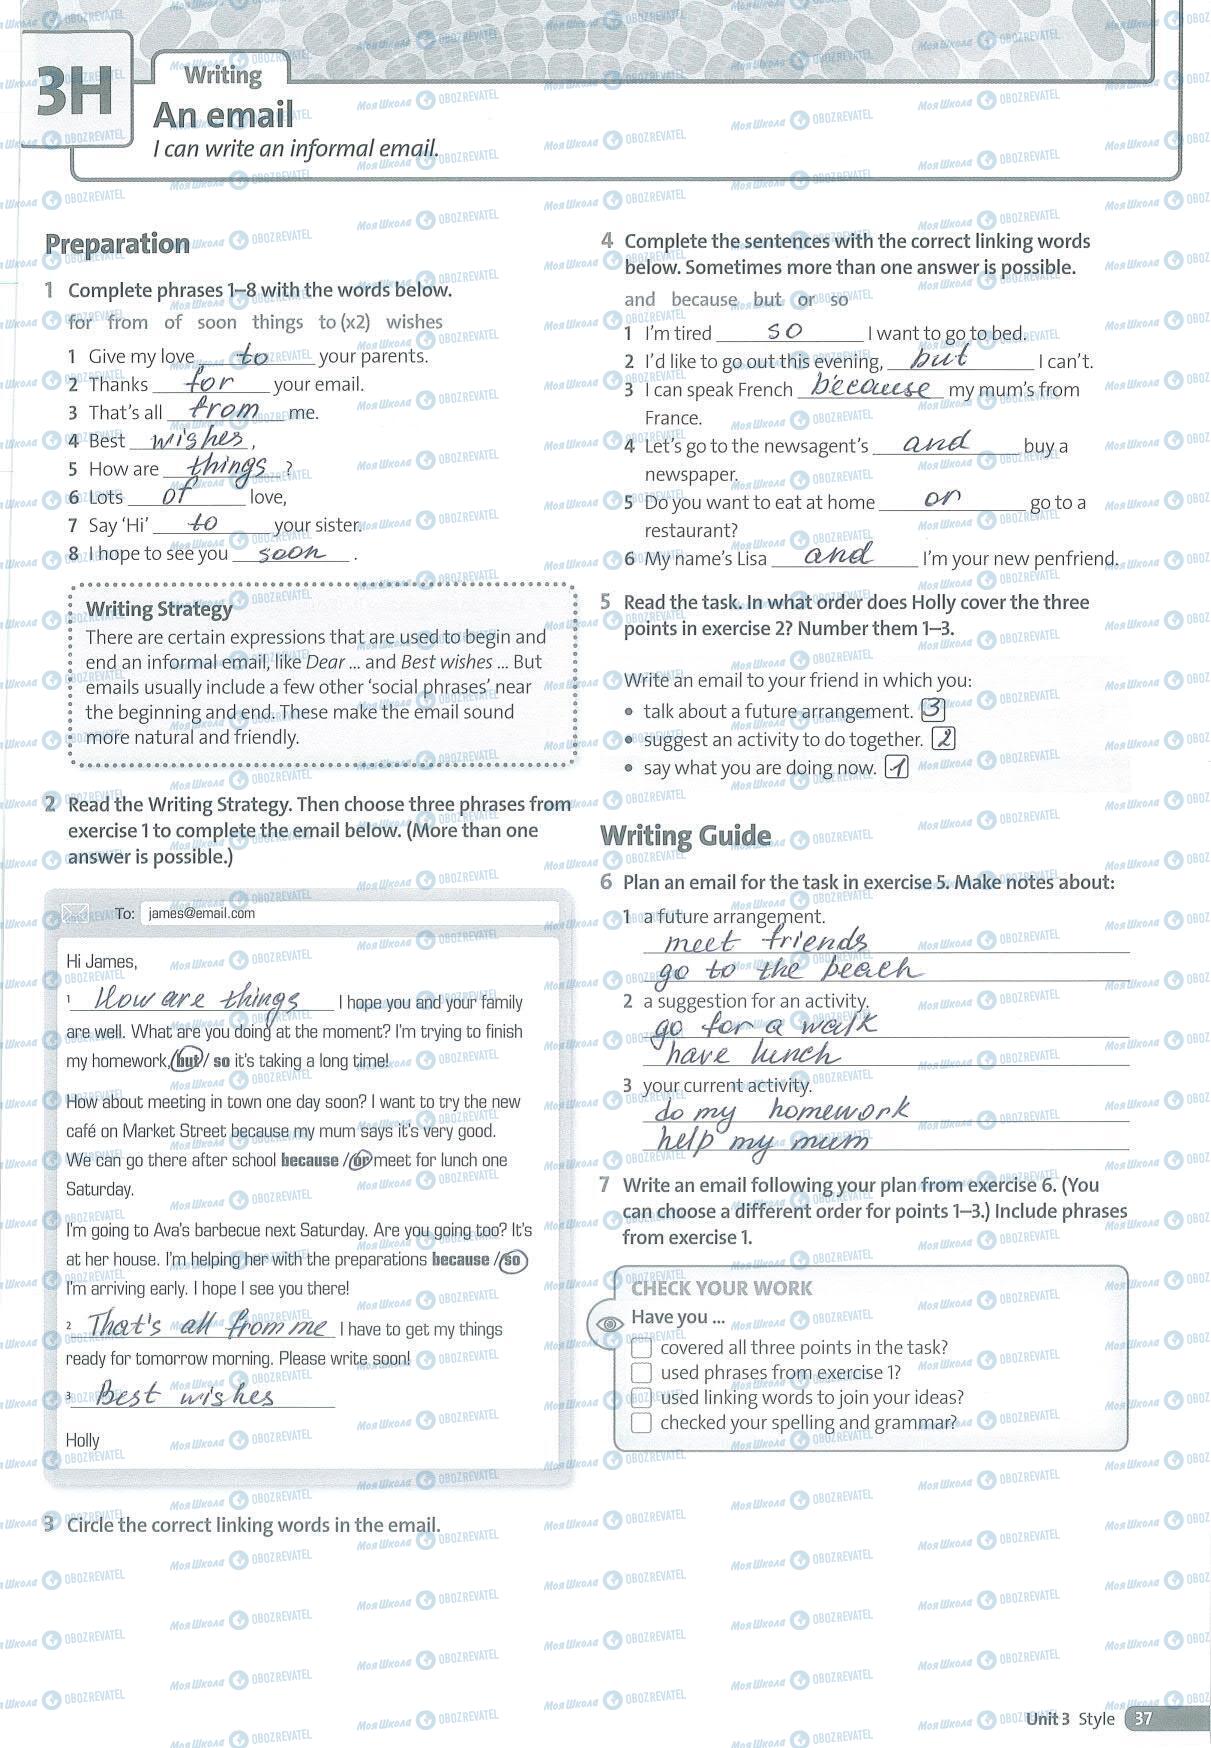 3H
Writing
An email
I can write an informal email.
Preparation
1 Complete phrases 1–8 with the words below.
for from of soon things to (x2) wishes
1 Give my love to your parents.
2 Thanks for your email.
3 That's all from me.
4 Best wishes,
5 How are things ?
6 Lots of love,
7 Say 'Hi' to your sister.
8 I hope to see you soon.
Writing Strategy
There are certain expressions that are used to begin and
end an informal email, like Dear ... and Best wishes ... But
emails usually include a few other 'social phrases' near
the beginning and end. These make the email sound
more natural and friendly.
2 Read the Writing Strategy. Then choose three phrases from
exercise 1 to complete the email below. (More than one
answer is possible.)
To: james@email.com
Hi James,
1 How are things I hope you and your family
are well. What are you doing at the moment? I'm trying to finish
my homework, but / so it's taking a long time!
How about meeting in town one day soon? I want to try the new
café on Market Street because my mum says it's very good.
We can go there after school because / or meet for lunch one
Saturday.
I'm going to Ava's barbecue next Saturday. Are you going too? It's
at her house. I'm helping her with the preparations because / so
I'm arriving early. I hope I see you there!
2 That's all from me I have to get my things
ready for tomorrow morning. Please write soon!
3 Best wishes
Holly
3 Circle the correct linking words in the email.
4 Complete the sentences with the correct linking words
below. Sometimes more than one answer is possible.
and because but or so
1 I'm tired so I want to go to bed.
2 I'd like to go out this evening, but I can't.
3 I can speak French because my mum's from
France.
4 Let's go to the newsagent's and buy a
newspaper.
5 Do you want to eat at home or go to a
restaurant?
6 My name's Lisa and I'm your new penfriend.
5 Read the task. In what order does Holly cover the three
points in exercise 2? Number them 1–3.
Write an email to your friend in which you:
• talk about a future arrangement. 3
• suggest an activity to do together. 2
• say what you are doing now. 1
Writing Guide
6 Plan an email for the task in exercise 5. Make notes about:
1 a future arrangement.
meet friends
go to the beach
2 a suggestion for an activity.
go for a walk
have lunch
3 your current activity.
do my homework
help my mum
7 Write an email following your plan from exercise 6. (You
can choose a different order for points 1–3.) Include phrases
from exercise 1.
CHECK YOUR WORK
Have you ...
covered all three points in the task?
used phrases from exercise 1?
used linking words to join your ideas?
checked your spelling and grammar?
Unit 3 Style 37
Моя Школа OBOZREVATEL